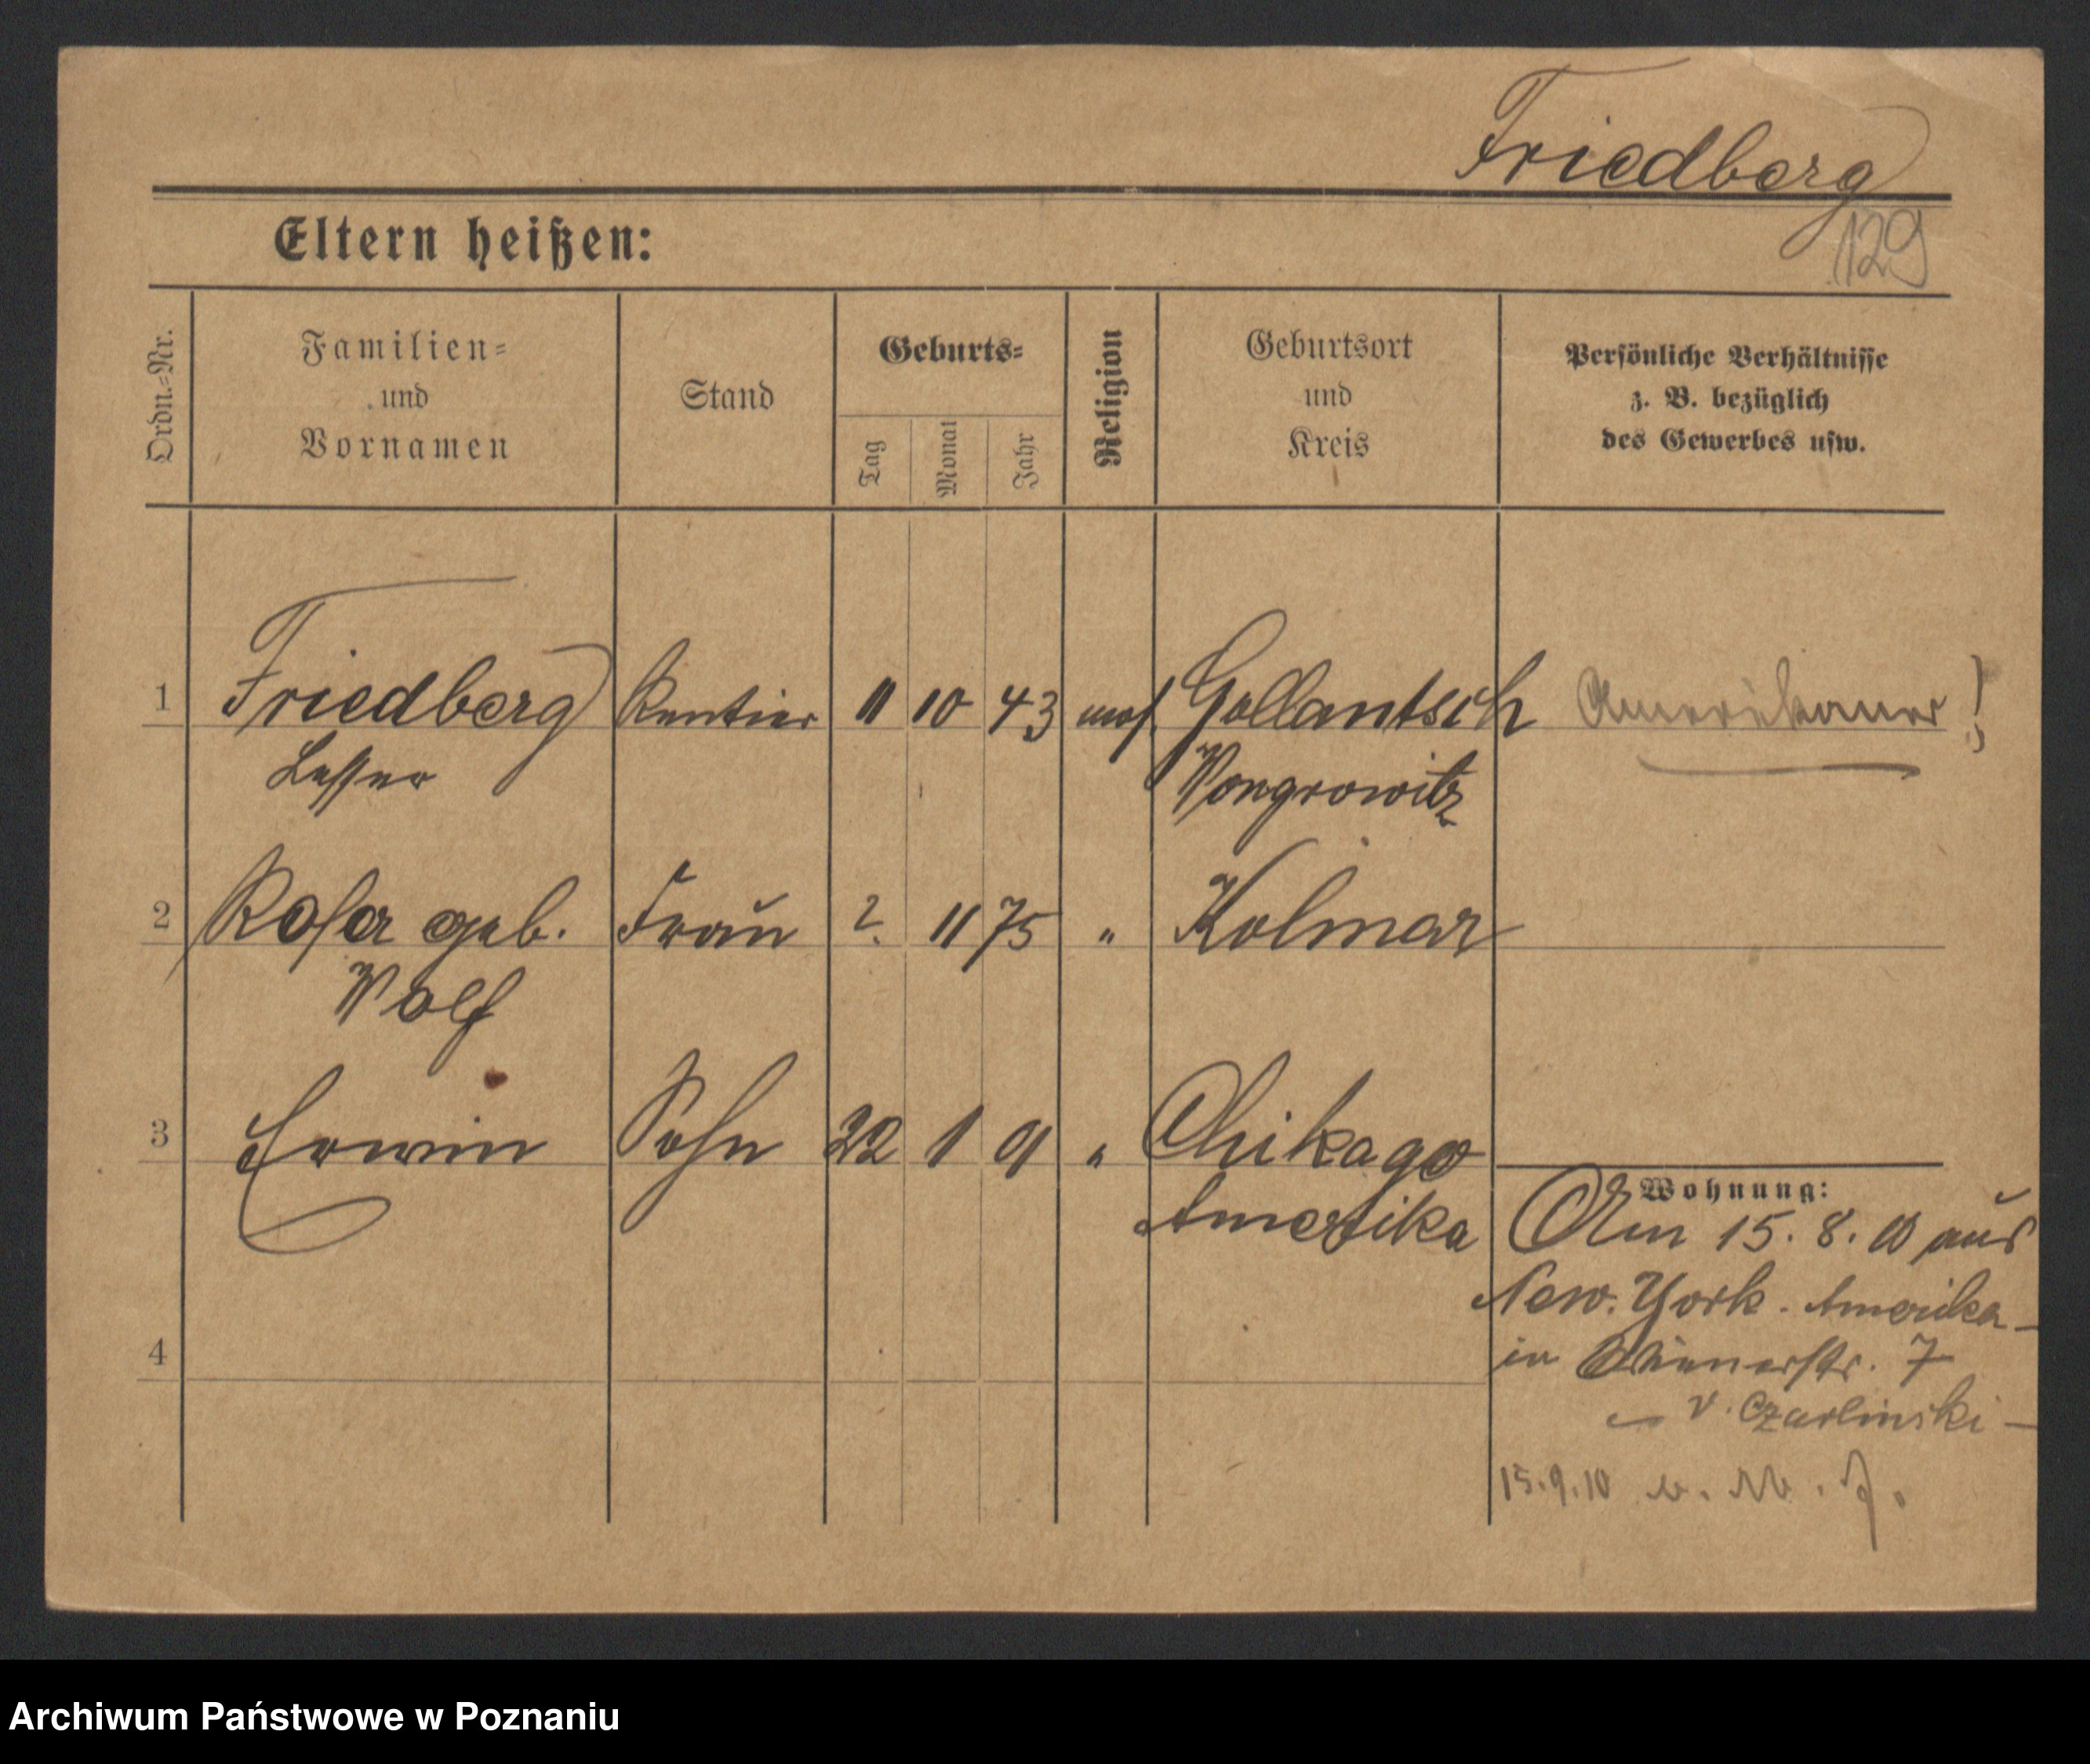 Friedberg
129
Eltern heißen:
Ordn.-Nr.
Familien-
und
Vornamen
Stand
Geburts-
Tag
Monat
Jahr
Religion
Geburtsort
und
Kreis
Persönliche Verhältnisse
z. B. bezüglich
des Gewerbes usw.
1 Friedberg Rentier 11 10 43 mos. Gollantsch Amerikaner!
Lesser Wongrowitz
2 Rosa geb. Frau 2. 11 75 " Kolmar
Wolf
3 Erwin Sohn 22 1 01 " Chikago
Amerika
Wohnung:
Am 15. 8. 10 aus
New. York. Amerika -
in 7
- v. Czarlinski -
4
15.9.10
Archiwum Państwowe w Poznaniu